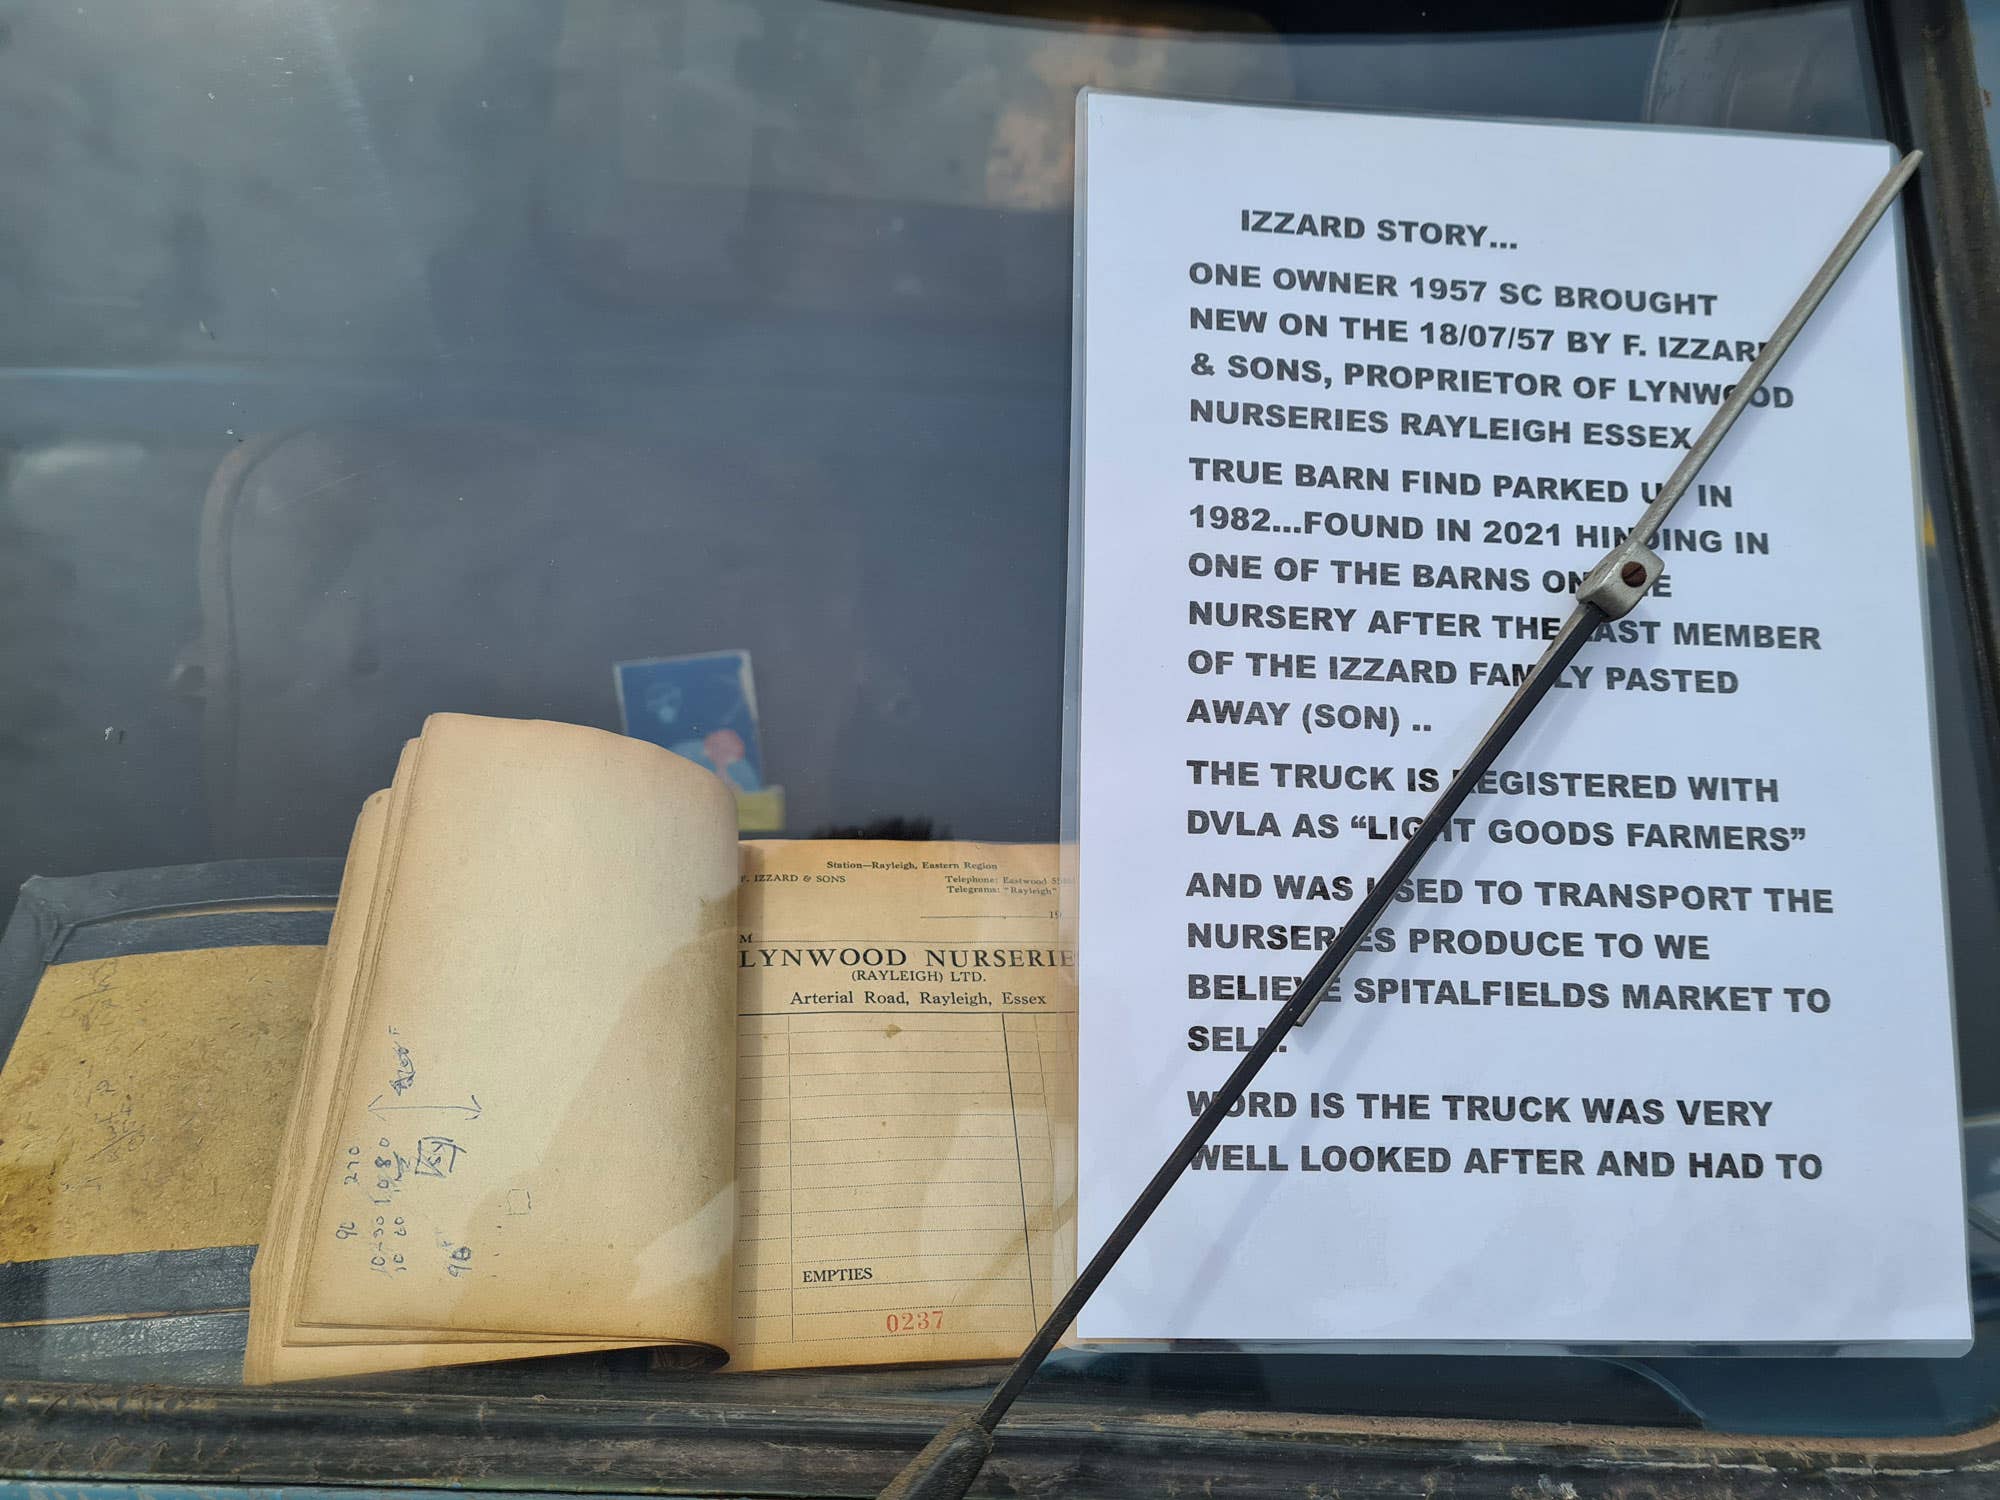 IZZARD STORY...
ONE OWNER 1957 SC BROUGHT
NEW ON THE 18/07/57 BY F. IZZARD
& SONS, PROPRIETOR OF LYNWOOD
NURSERIES RAYLEIGH ESSEX
TRUE BARN FIND PARKED UP IN
1982...FOUND IN 2021 HINDING IN
ONE OF THE BARNS ON THE
NURSERY AFTER THE LAST MEMBER
OF THE IZZARD FAMILY PASTED
AWAY (SON) ..
THE TRUCK IS REGISTERED WITH
DVLA AS “LIGHT GOODS FARMERS”
AND WAS USED TO TRANSPORT THE
NURSERIES PRODUCE TO WE
BELIEVE SPITALFIELDS MARKET TO
SELL.
WORD IS THE TRUCK WAS VERY
WELL LOOKED AFTER AND HAD TO
Station—Rayleigh, Eastern Region
F. IZZARD & SONS
Telephone: Eastwood
Telegrams: "Rayleigh"
19
M
LYNWOOD NURSERIE
(RAYLEIGH) LTD.
Arterial Road, Rayleigh, Essex
EMPTIES
0237
270
1080